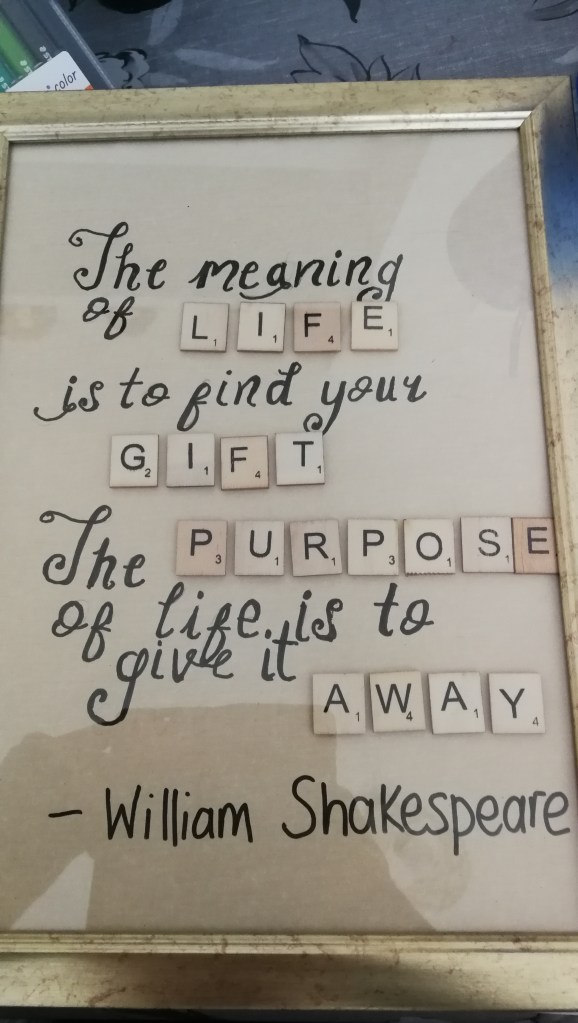 color
The meaning
of LIFE
is to find your
GIFT
The PURPOSE
of life is to
give it
AWAY
- William Shakespeare